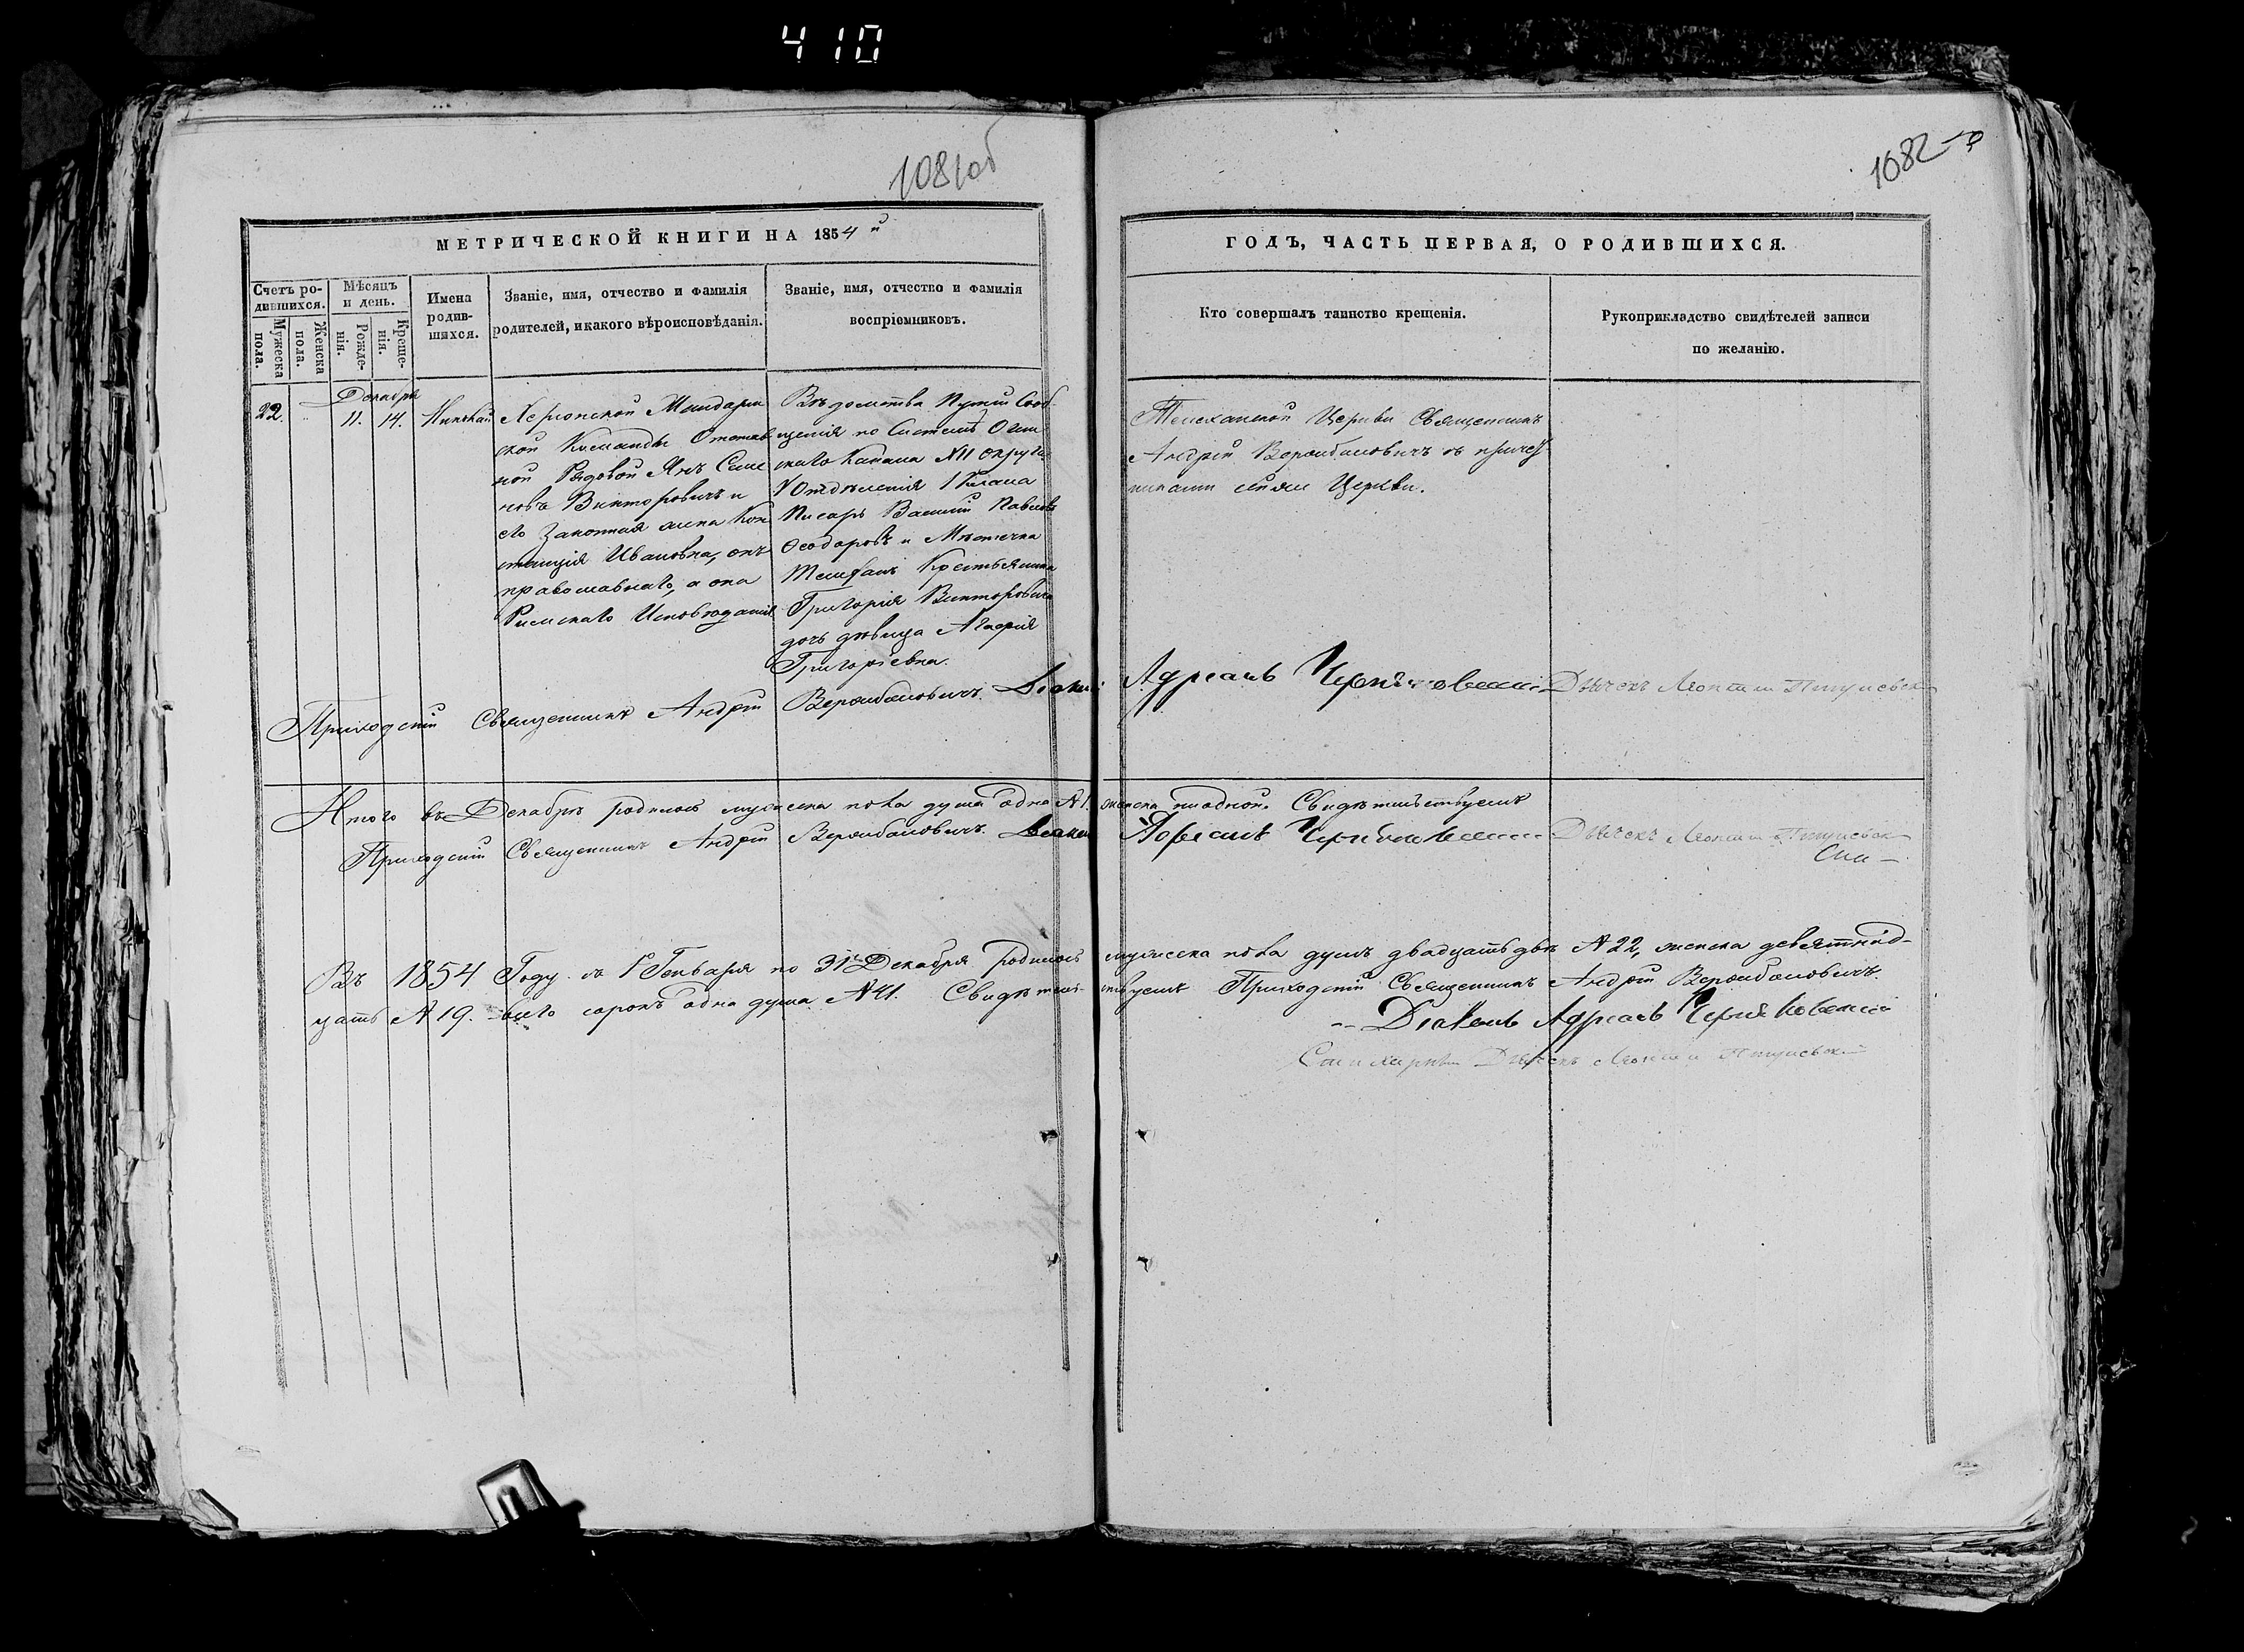 410
1081об
1082
МЕТРИЧЕСКОЙ КНИГИ НА 1854 й
ГОДЪ, ЧАСТЬ ПЕРВАЯ, О РОДИВШИХСЯ.
Счетъ ро-
дившихся.
Мужеска
пола.
Женска
пола.
Мѣсяцъ
и день.
Рожде-
нія.
Креще-
нія.
Имена
родив-
шихся.
Званіе, имя, отчество и фамилія
родителей, и какого вѣроисповѣданія.
Званіе, имя, отчество и фамилія
воспріемниковъ.
Кто совершалъ таинство крещенія.
Рукоприкладство свидѣтелей записи
по желанію.
Декабрь
22. 11. 14. Николай
Херсонской Жандарм
ской Команды Отстав
ной Рядовой Янъ Семе
новъ Викторовичъ и
его Законная жена Кон
станція Ивановна, онъ
православнаго, а она
Римскаго Исповѣданія
Вѣдомства Путей Сооб-
щенія по Системѣ Огин
скаго Канала XII округа
V Отдѣленія 1 Класа
Писарь Василій Павловъ
Ѳеодоровъ и Мѣстечка
Телеханъ Крестьянина
Григорія Викторовича
дочь дѣвица Агафія
Григоріевна.
Телеханской Церкви Священникъ
Андрей Вержбаловичъ съ причет
никами сѣяже Церкви.
Приходскій Священникъ Андрей Вержбаловичъ. Діаконъ Адріанъ Черняковскій Дьячекъ
Итого въ Декабрѣ родилось мужеска пола душа одна №1. женска ниодной. Свидѣтельствуемъ
Приходскій Священникъ Андрей Вержбаловичъ. Діаконъ Адріанъ Черняковскій Дьячекъ
Въ 1854 Году съ 1 Генваря по 31е Декабря родилось мужеска пола душъ двадцать двѣ №22, женска девятнад-
цать №19. всего сорокъ одна душа №41. Свидѣтельствуемъ Приходскій Священникъ Андрей Вержбаловичъ.
Діаконъ Адріанъ Черняковскій
Дьячекъ